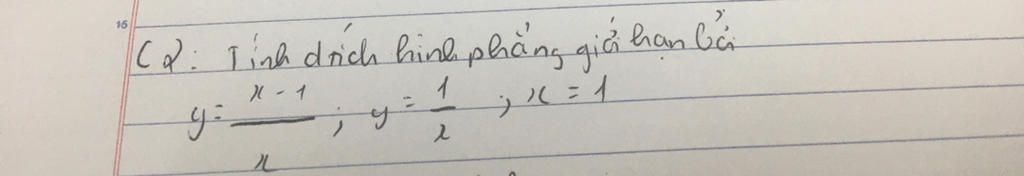 15
C2: Tính d tích hình phẳng giới hạn bởi
y = x - 1 / x ; y = 1 / x ; x = 1